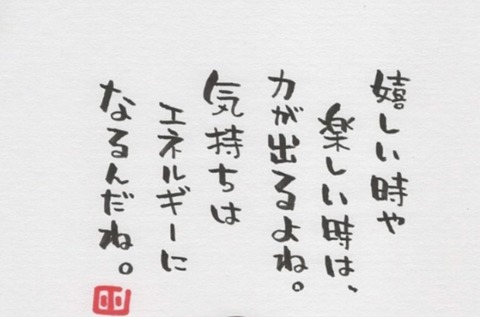 嬉しい時や
楽しい時は、
力が出るよね。
気持ちは
エネルギーに
なるんだね。